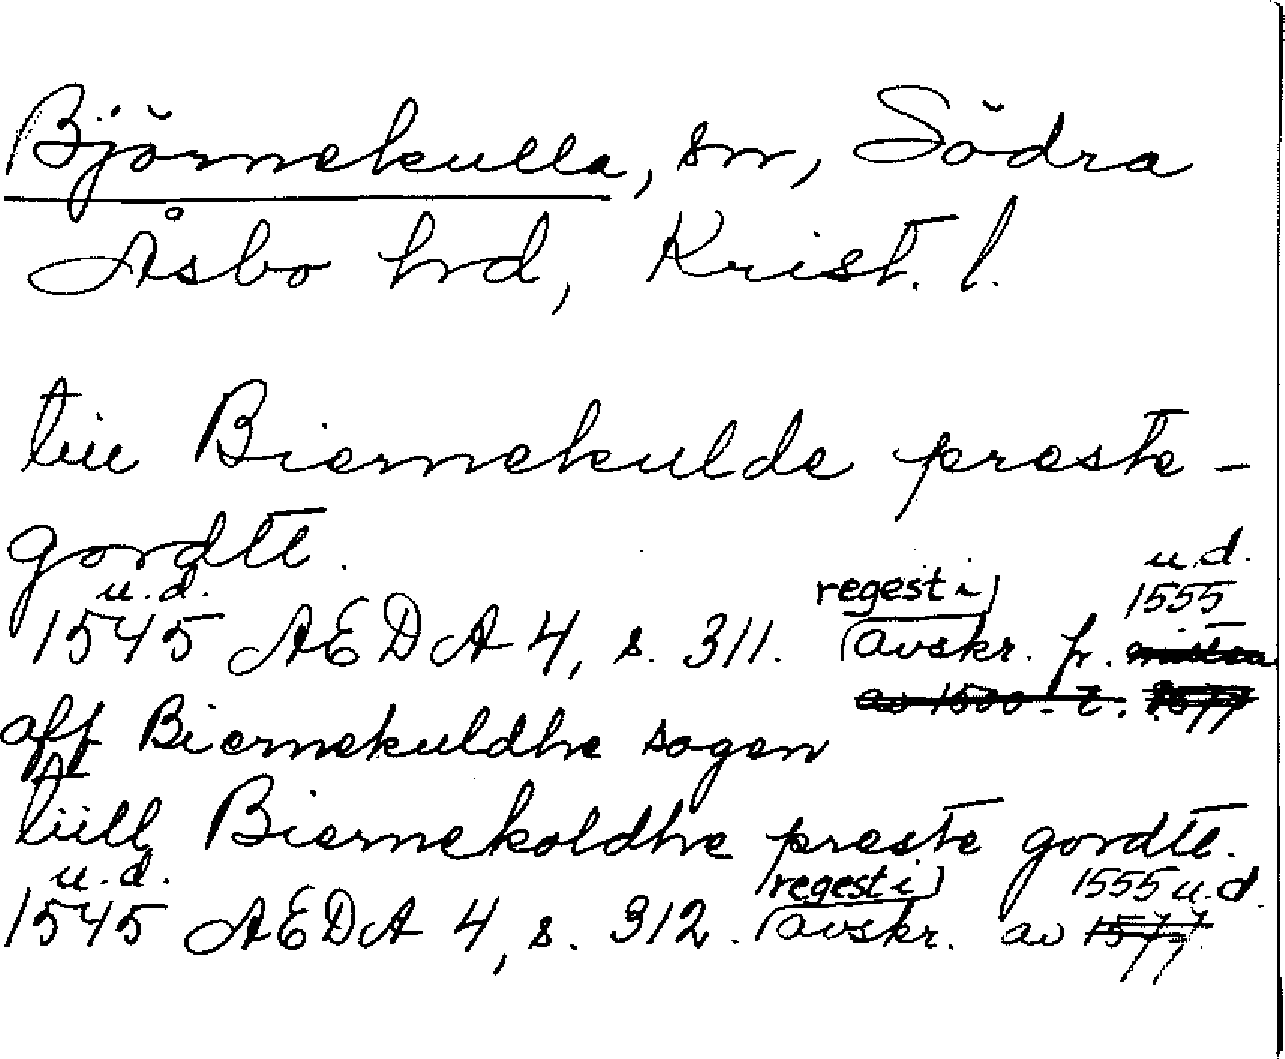 Björnekulla, sn, Södra
Åsbo hrd, Krist. l.
tiil Biernekulde preste-
gordtt.
u.d. regest i u.d. 1555
1545 AEDA 4, s. 311. (avskr. fr.
aff Biernekuldhe sogen
tiill Biernekoldhe preste gordtt.
u.d. regest i 1555 u.d.
1545 AEDA 4, s. 312. (avskr. av 1577